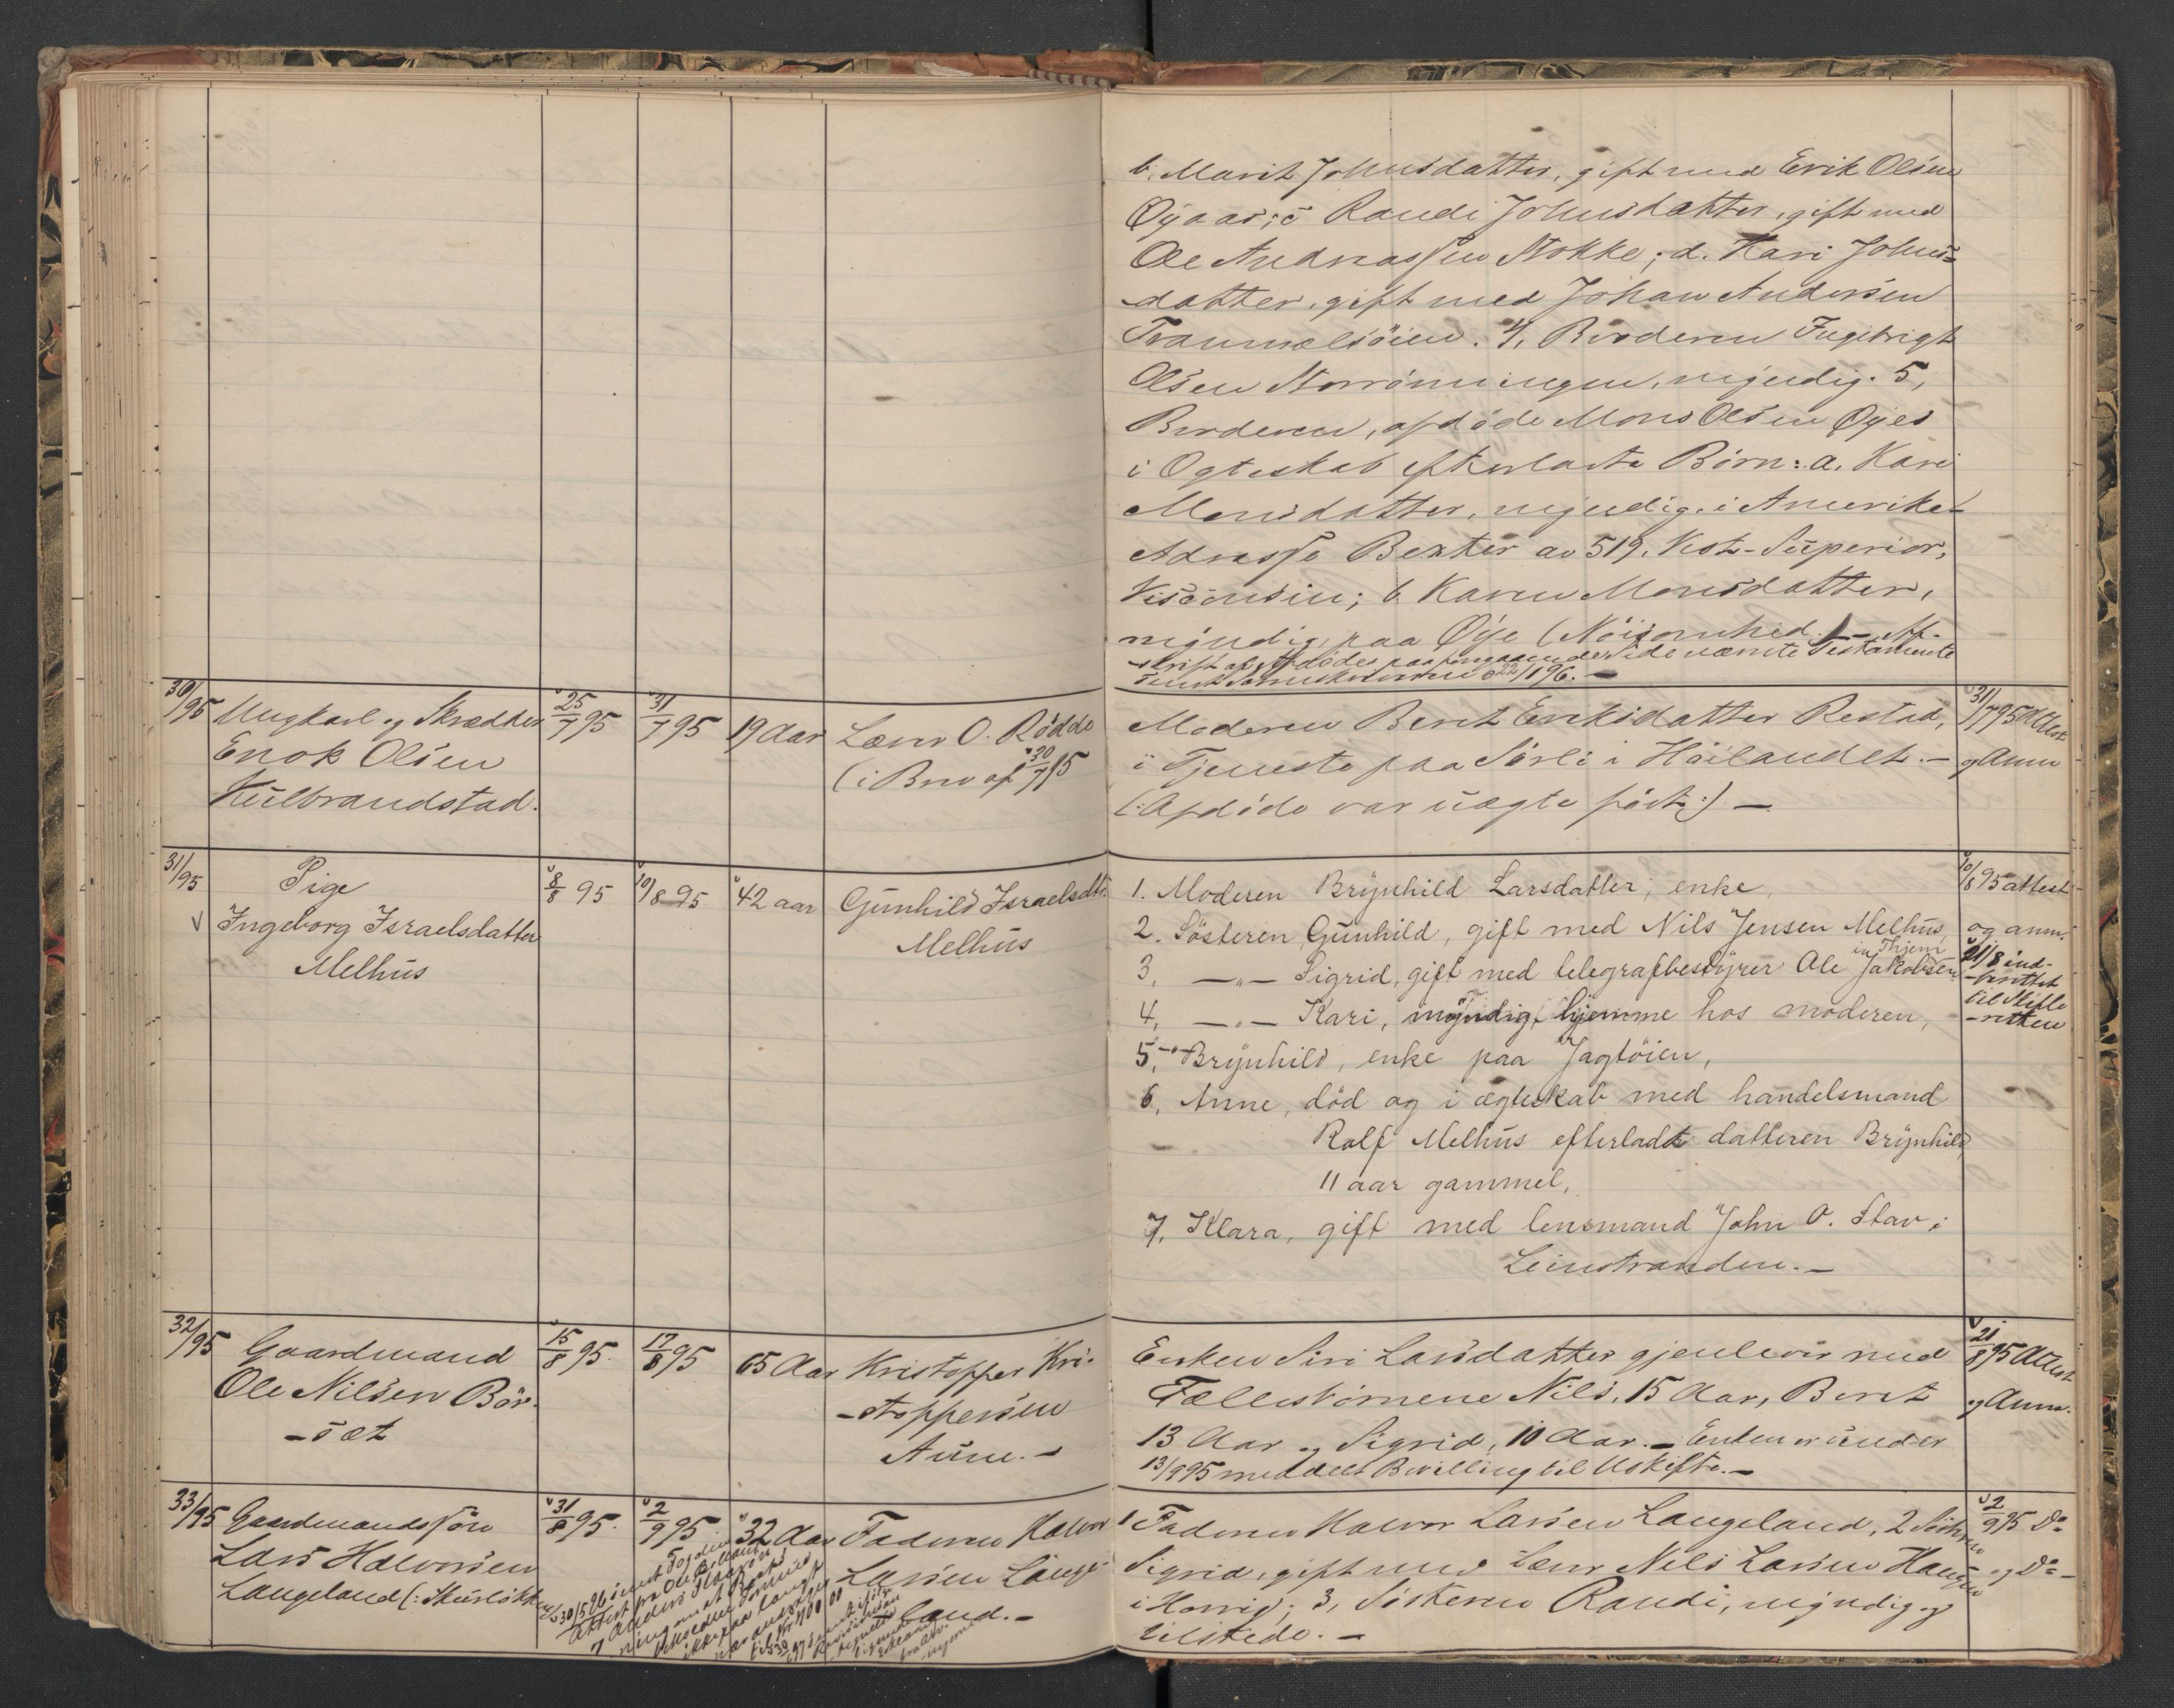 b. Marit Johnsdatter, gift med Erik Olsen
Øyaas; c Randi Johnsdatter, gift med
Ole Andreassen Stokke; d. Kari Johns=
-datter, gift med Johan Andersen
4, Broderen Ingebrigt
Olsen myndig. 5,
Broderen, afdöde Mons Olsen Øyes
i Ægteskab efterladte Börn: a. Kari
Monsdatter, myndig, i Amerika
Adresse Bexter av 519. Vest-Superior,
Visconsin; b. Karen Monsdatter,
myndig, paa Øye (Nöisomhed.) - Af-
-skrift af Afdödes paa foregaaende Side nævnte Testamente
22/1 96. -
30/95
Ungkarl og Skrædder
Enok Olsen
Kulbrandstad.
25/7 95
31/7 95
19 Aar
Lærer O. Rödde
(i Brev af 30/7 95
Moderen Beret Eriksdatter Restad,
i Tjeneste paa Sörli i Höilandet. -
(: Afdöde var uægte födt :) -
31/7 95 Attest
og Anm
31/95
Pige
Ingeborg Israelsdatter
Melhus
8/8 95
10/8 95
42 aar
Gunhild Israelsdtr.
Melhus
1. Moderen Brynhild Larsdatter, enke,
2. Sösteren Gunhild, gift med Nils Jensen Melhus,
3, -„- Sigrid, gift med telegrafbestyrer Ole Jakobsen
4, -„- Kari, myndig, hjemme hos moderen,
5, -„- Brynhild, enke paa Jagtöien,
6, Anne, död og i ægteskab med handelsmand
Rolf Melhus efterladt datteren Brynhild,
11 aar gammel,
7, Klara, gift med lensmand John O. Stav i
Leinstranden. -
10/8 95 attest
og anm.
21/8 ind-
-berettet
til Skifte
-retten
32/95
Gaardmand
Ole Nilsen Bör-
-sæt
15/8 95.
17/8 95
65 Aar
Kristoffer Kri-
-stoffersen
Aune. -
Enken Siri Larsdatter gjenlever med
Fællesbörnene Nils, 15 Aar, Beret
13 Aar og Sigrid, 10 Aar. - Enken er under
13/9 95 meddelt Bevilling til Uskifte. -
21/8 95 Attest
og Anm.
33/95
Gaardmandssön
Lars Halvorsen
Langeland
31/8 95.
2/9 95.
32 Aar
Faderen Halvor
Larsen Lange-
-land. -
1 Faderen Halvor Larsen Langeland, 2 Sösteren
Sigrid, gift med Lærer Nils Larsen Haugen
i Horrig; 3, Sösteren Randi, myndig og
tilstede. -
2/9 95 Do
og Do-